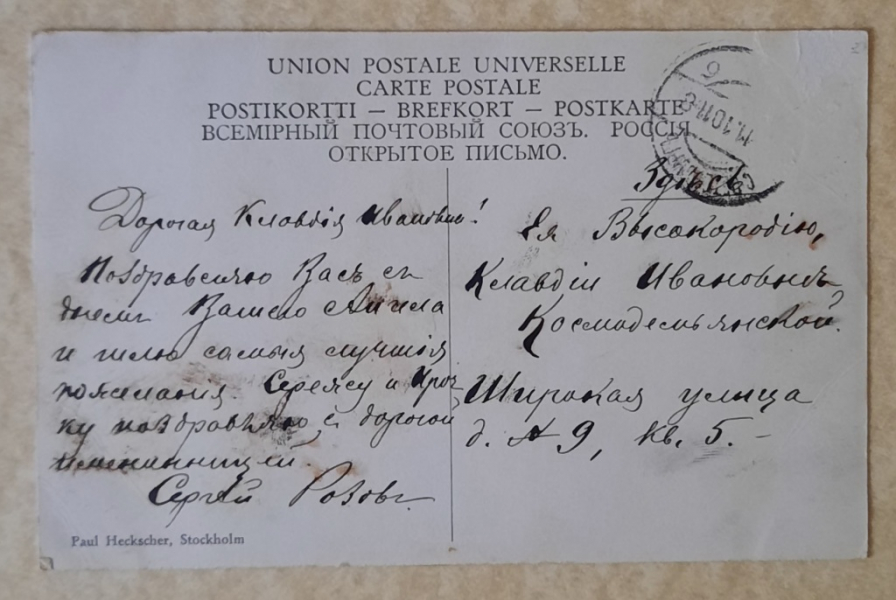 UNION POSTALE UNIVERSELLE
CARTE POSTALE
POSTIKORTTI — BREFKORT — POSTKARTE
ВСЕМІРНЫЙ ПОЧТОВЫЙ СОЮЗЪ. РОССІЯ
ОТКРЫТОЕ ПИСЬМО.
11.10.11
Здѣсь
Дорогая Клавдія Ивановна!
Поздравляю Васъ съ
днемъ Вашего Ангела
и шлю самыя лучшія
пожелания. Сережу и Ироч
ку поздравляю съ дорогой
именинницей.
Сергѣй Розовъ.
Ея Высокородію,
Клавдіи Ивановнѣ
Космодемьянской.
Широкая улица
д. № 9, кв. 5. –
Paul Heckscher, Stockholm